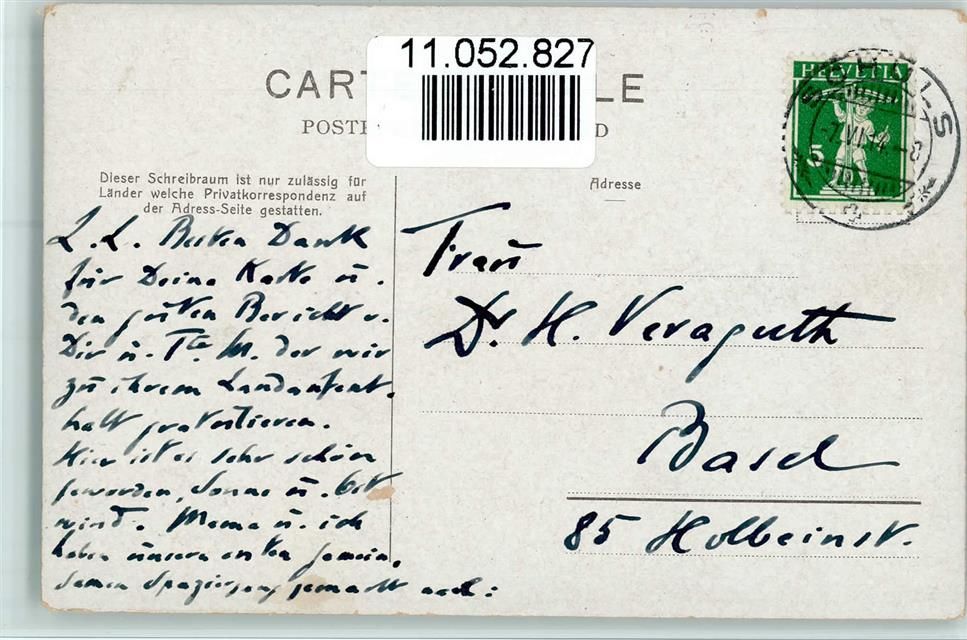 11.052.827
CART LE
POSTK D
HELVETIA
5
-7.VI.14.-8
Dieser Schreibraum ist nur zulässig für
Länder welche Privatkorrespondenz auf
der Adress-Seite gestatten.
Adresse
L. L. Besten Dank
für Deine Karte u.
den guten Bericht v.
Dir u. Tte M. der wir
zu ihrem Landaufent-
halt gratulieren.
Hier ist es sehr schön
geworden, Sonne u.
wind. Mama u. ich
haben unsern ersten gemein-
samen Spaziergang gemacht nach:
Frau
Dr. H. Veraguth
Basel
85 Holbeinstr.